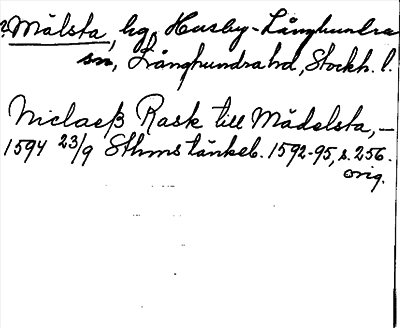 ?Målsta, hg, Husby-Långhundra
sn, Långhundra hd, Stockh. l.
Niclaeß Rask till Mådelsta, –
1594 23/9 Sthms tänkeb. 1592-95, s. 256.
orig.